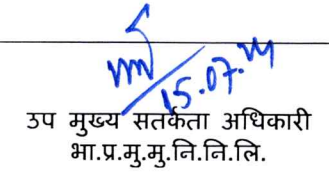 15.07.14
उप मुख्य सतर्कता अधिकारी
भा.प्र.मु.मु.नि.नि.लि.